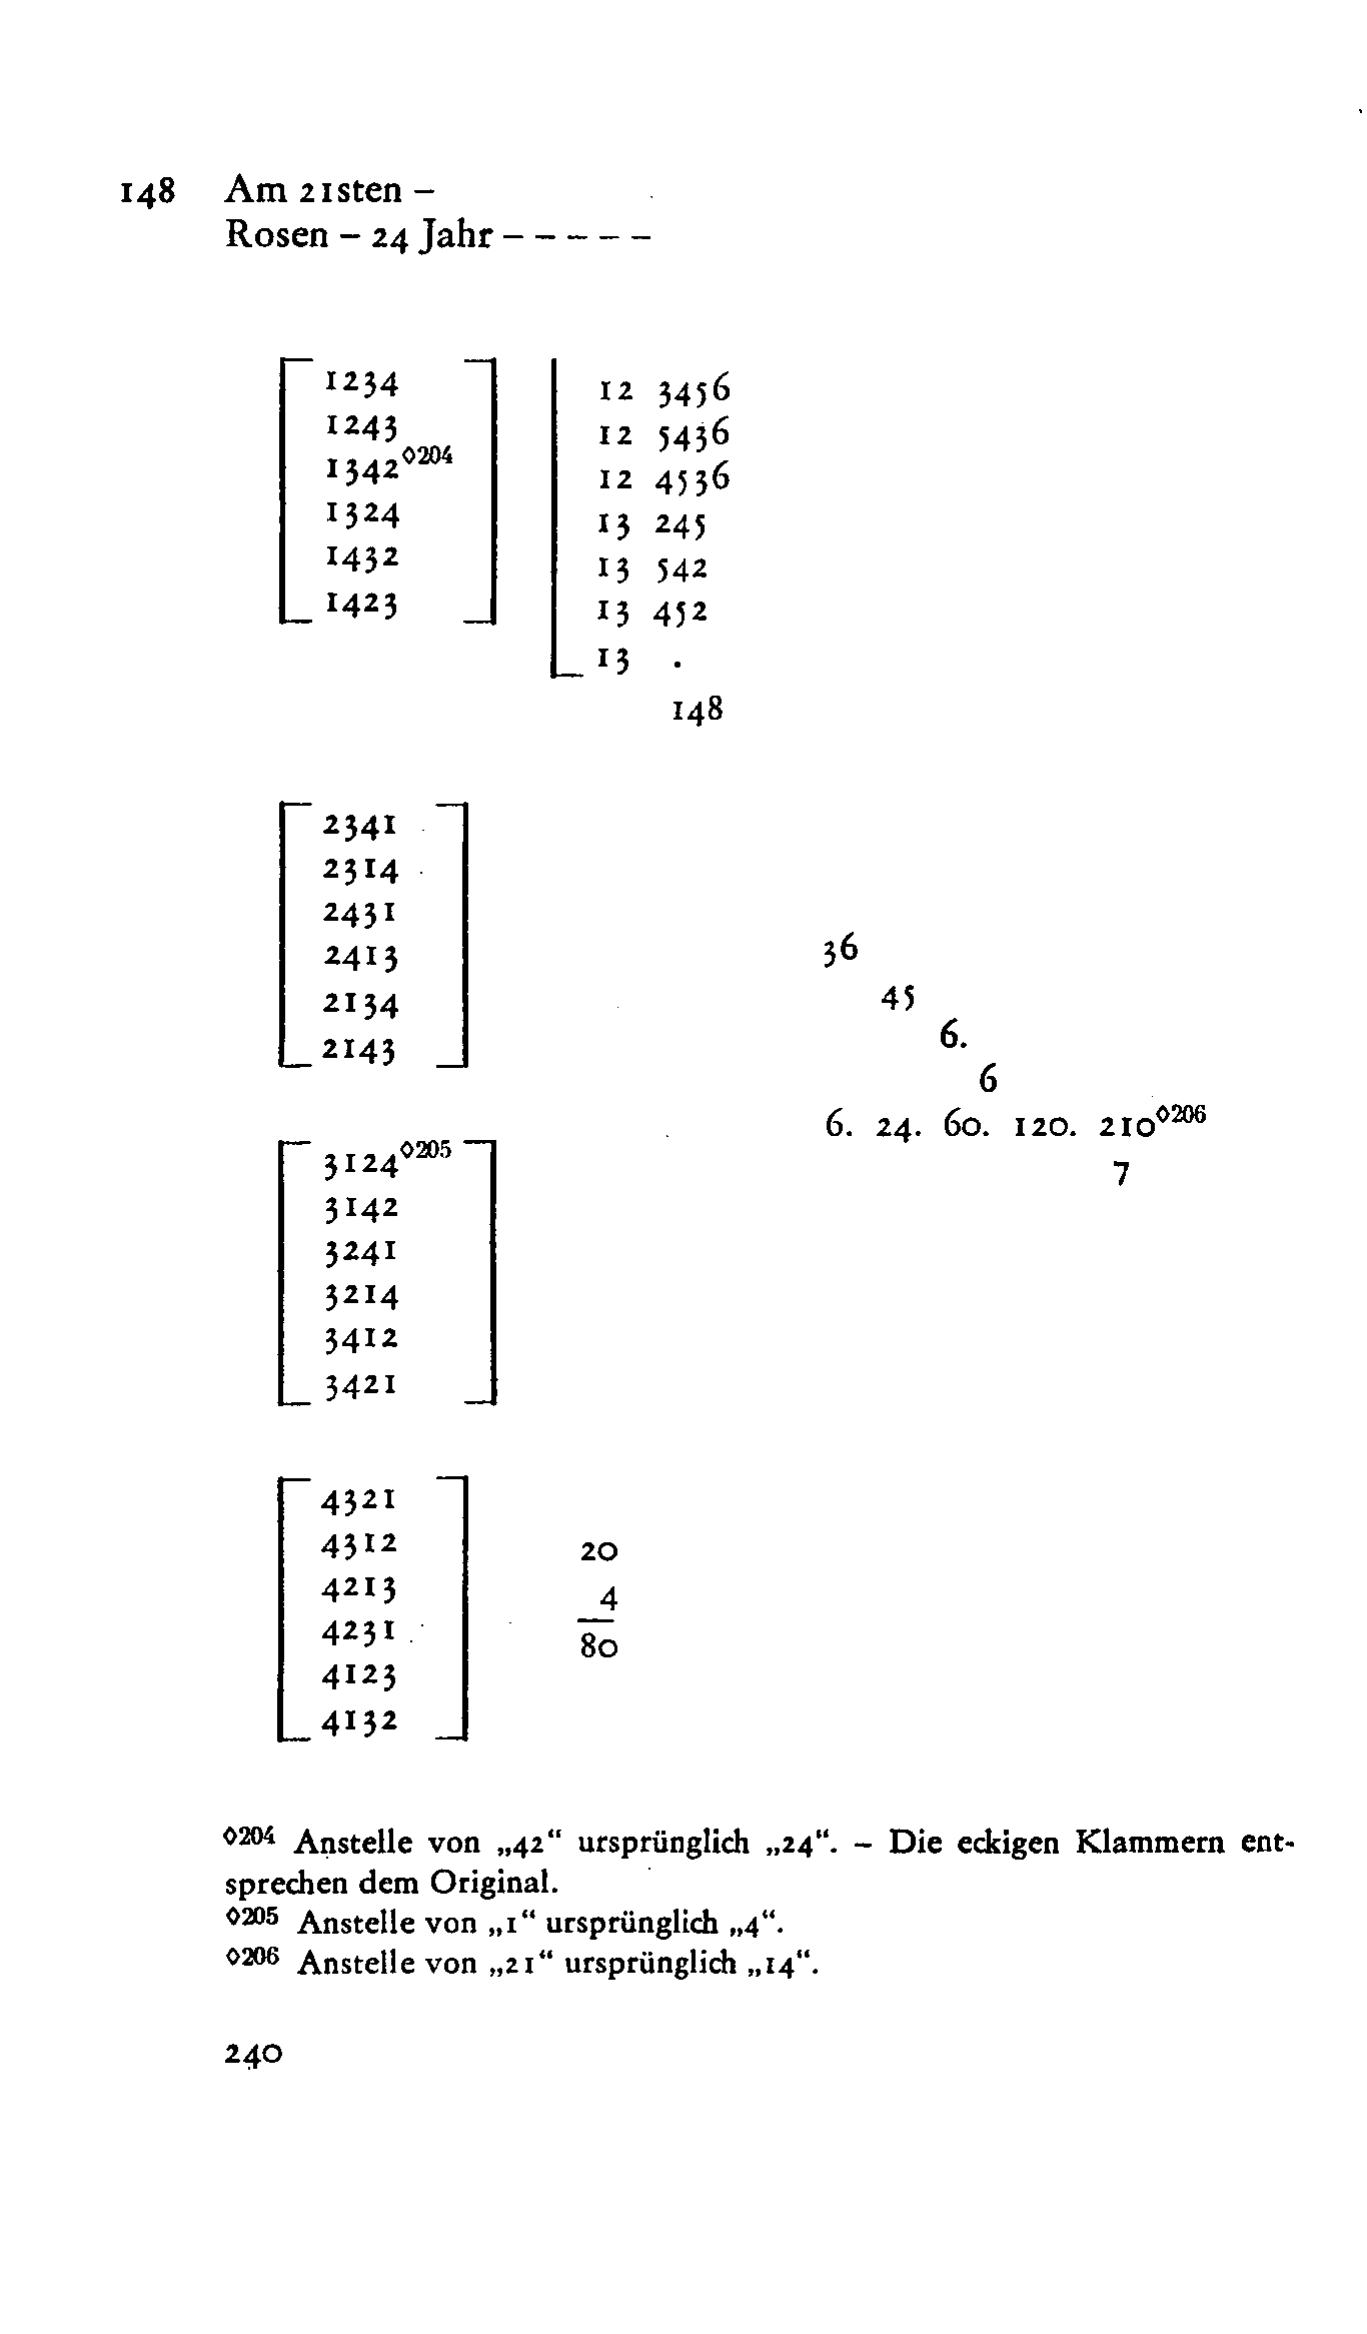 148 Am 21sten –
Rosen – 24 Jahr – – – – –
1234
1243
1342◊204
1324
1432
1423
12 3456
12 5436
12 4536
13 245
13 542
13 452
13 .
148
2341
2314
2431
2413
2134
2143
36
45
6.
6
6. 24. 60. 120. 210◊206
7
3124◊205
3142
3241
3214
3412
3421
4321
4312
4213
4231
4123
4132
20
4
80
◊204 Anstelle von „42“ ursprünglich „24“. – Die eckigen Klammern ent-
sprechen dem Original.
◊205 Anstelle von „1“ ursprünglich „4“.
◊206 Anstelle von „21“ ursprünglich „14“.
240